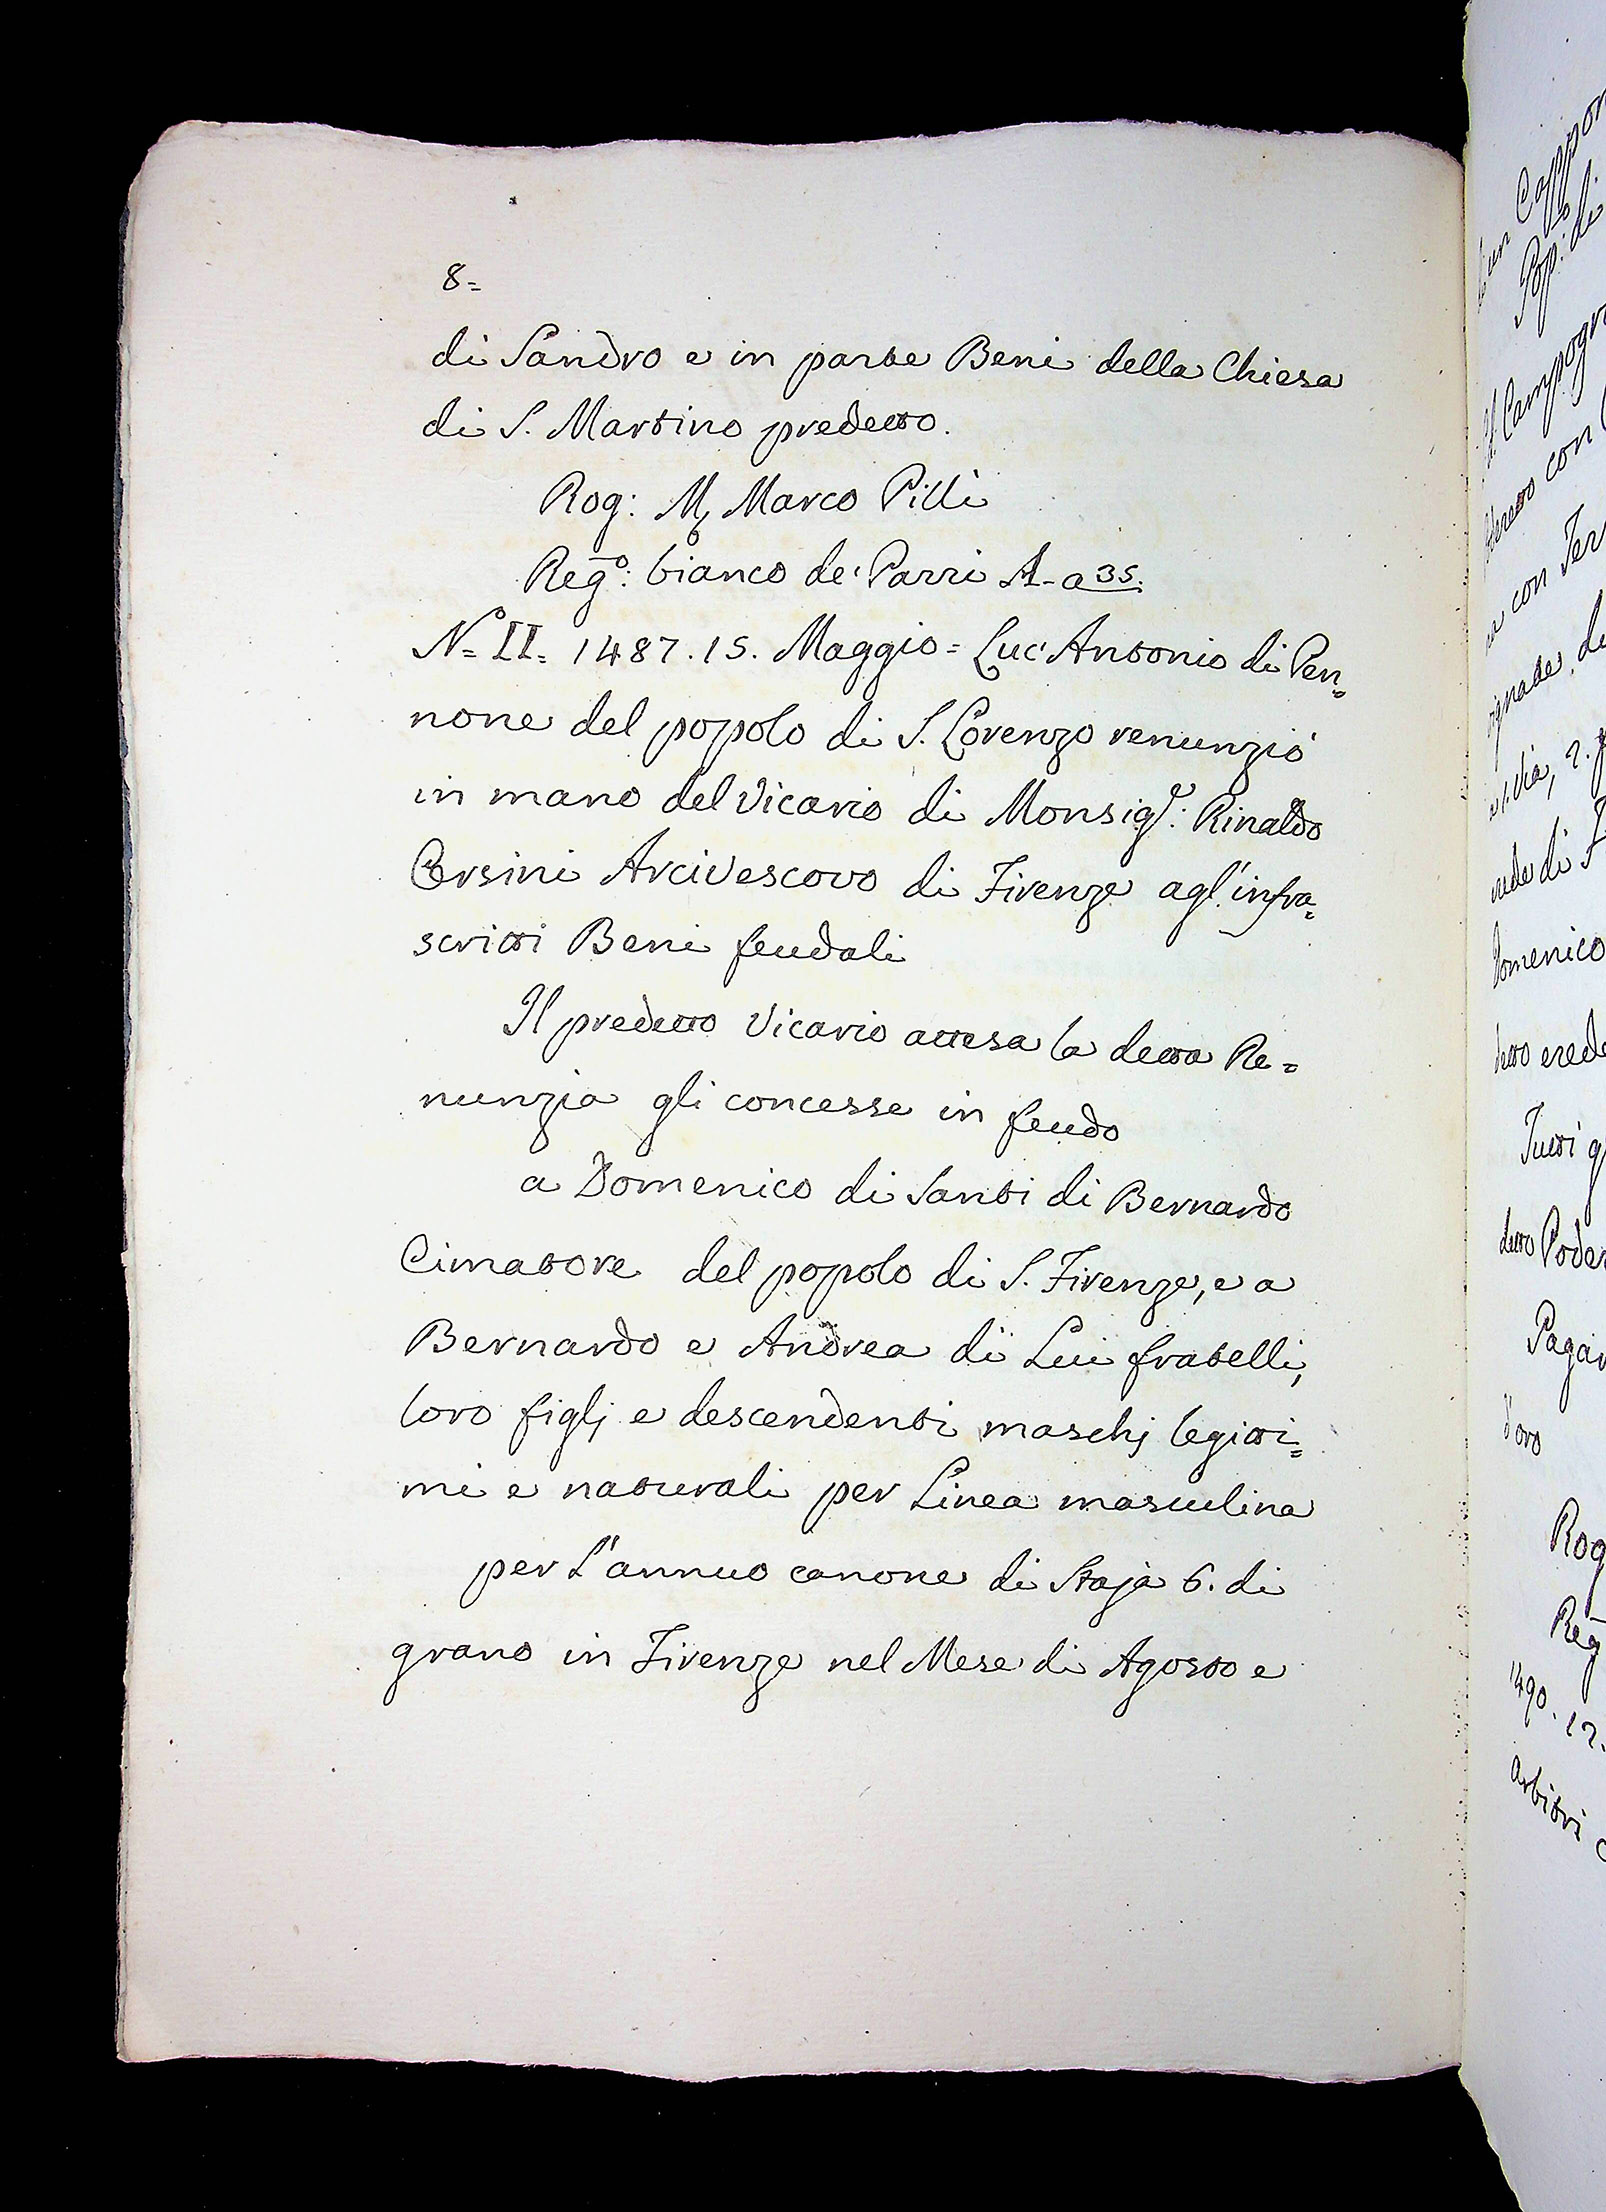 8=
di Sandro e in parte Beni della Chiesa
di S. Martino predetto.
Rog: M, Marco Pilli
Regº: bianco de' Parri A-a 35.
Nº II. 1487. 15. Maggio = Luc'Antonio di Pen=
none del popolo di S. Lorenzo renunziò
in mano del Vicario di Monsigr: Rinaldo
Orsini Arcivescovo di Firenze agl'infra=
scritti Beni feudali
Il predetto Vicario attesa la detta Re=
nunzia gli concesse in feudo
a Domenico di Santi di Bernardo
Cimatore del popolo di S. Firenze, e a
Bernardo e Andrea di Lui fratelli,
loro figlj e descendenti maschj legitti=
mi e naturali per Linea masculina
per l'annuo canone di Staja 6. di
grano in Firenze nel Mese di Agosto e
un Cappon
Pop: di
Campogr
con
con Ter
di
Via, 2. p
di
Domenico
detto erede
Tutti q
detto Poder
Pagar
d'oro
Rog
Reg
1490. 12.
Arbitri